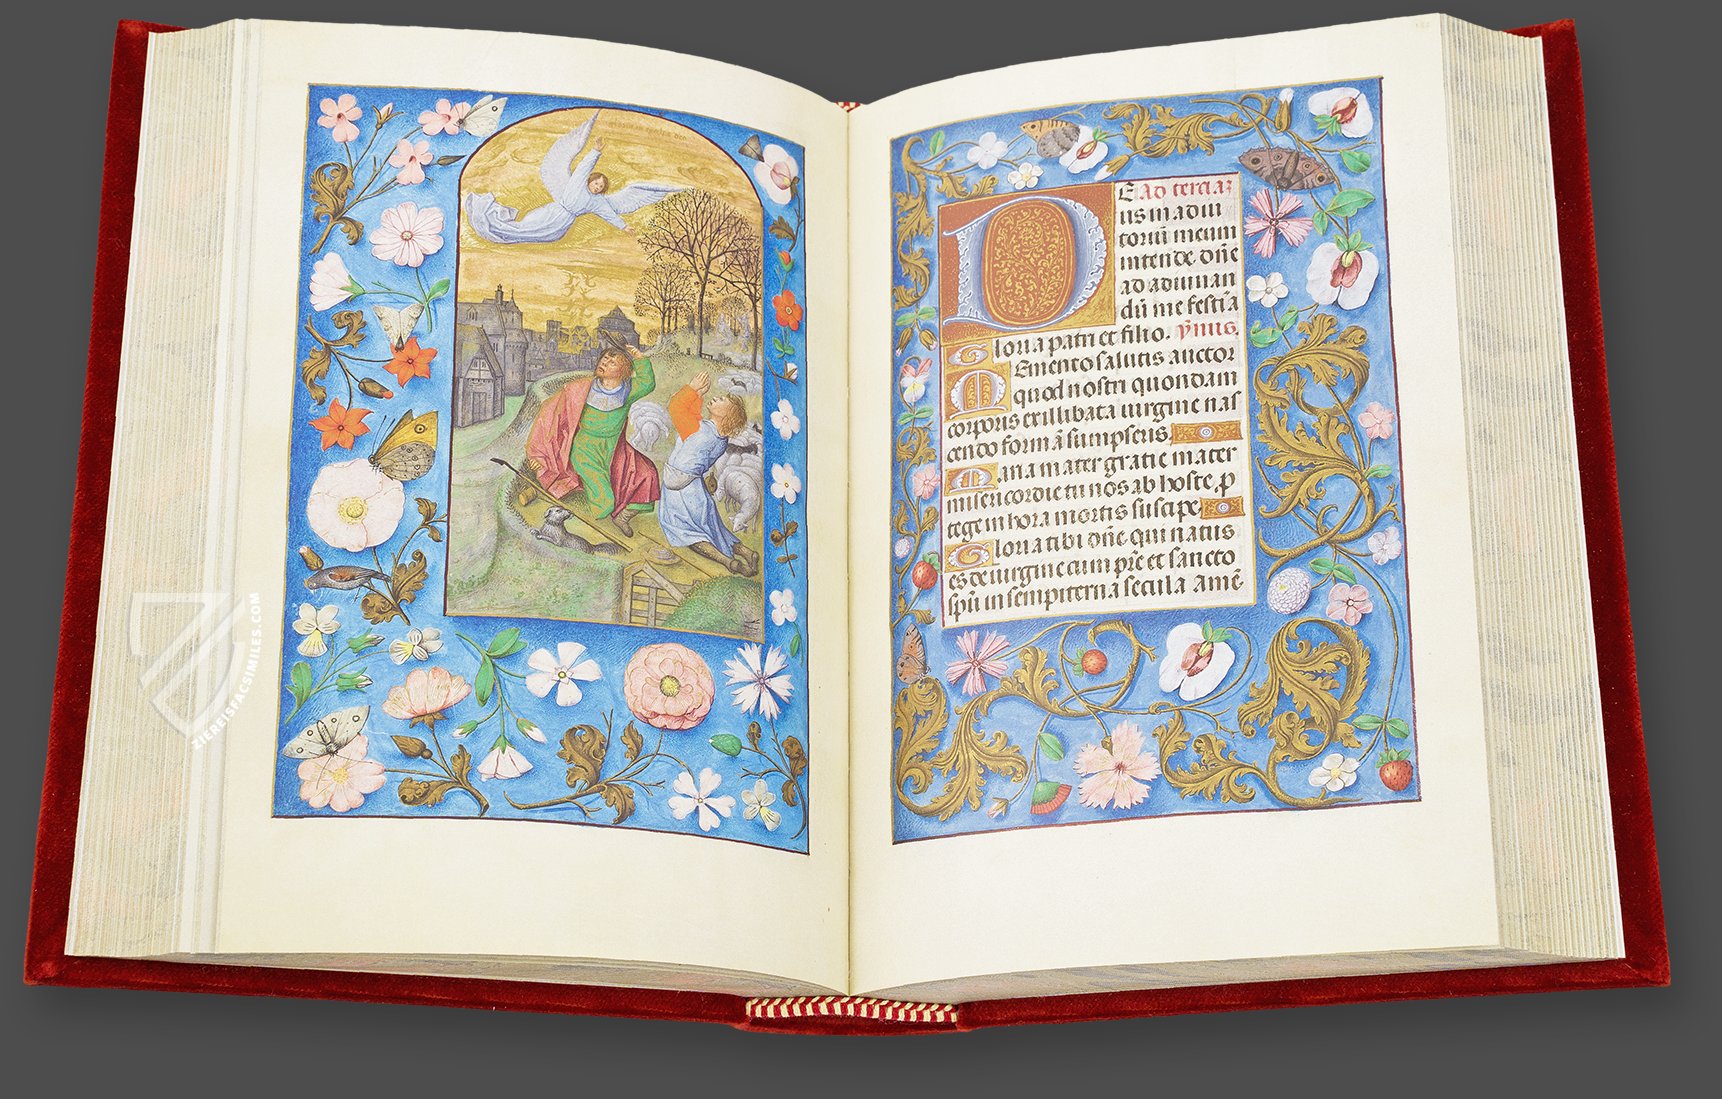 ZIEREISFACSIMILES.COM
D E Ad terciaz
us in adiu
toriū meum
intende dn̄e
ad adiuuan
dū me festīa
Gloria patri et filio. ymus.
Memento salutis auctor
quod nostri quondam
corporis ex illibata uirgine nas
cendo formā sumpseris.
Maria mater gratie mater
misericordie tu nos ab hoste p
tege in hora mortis suscipe
Gloria tibi dn̄e qui natus
es de uirgine cum pr̄e et sancto
spū in sempiterna secula amē